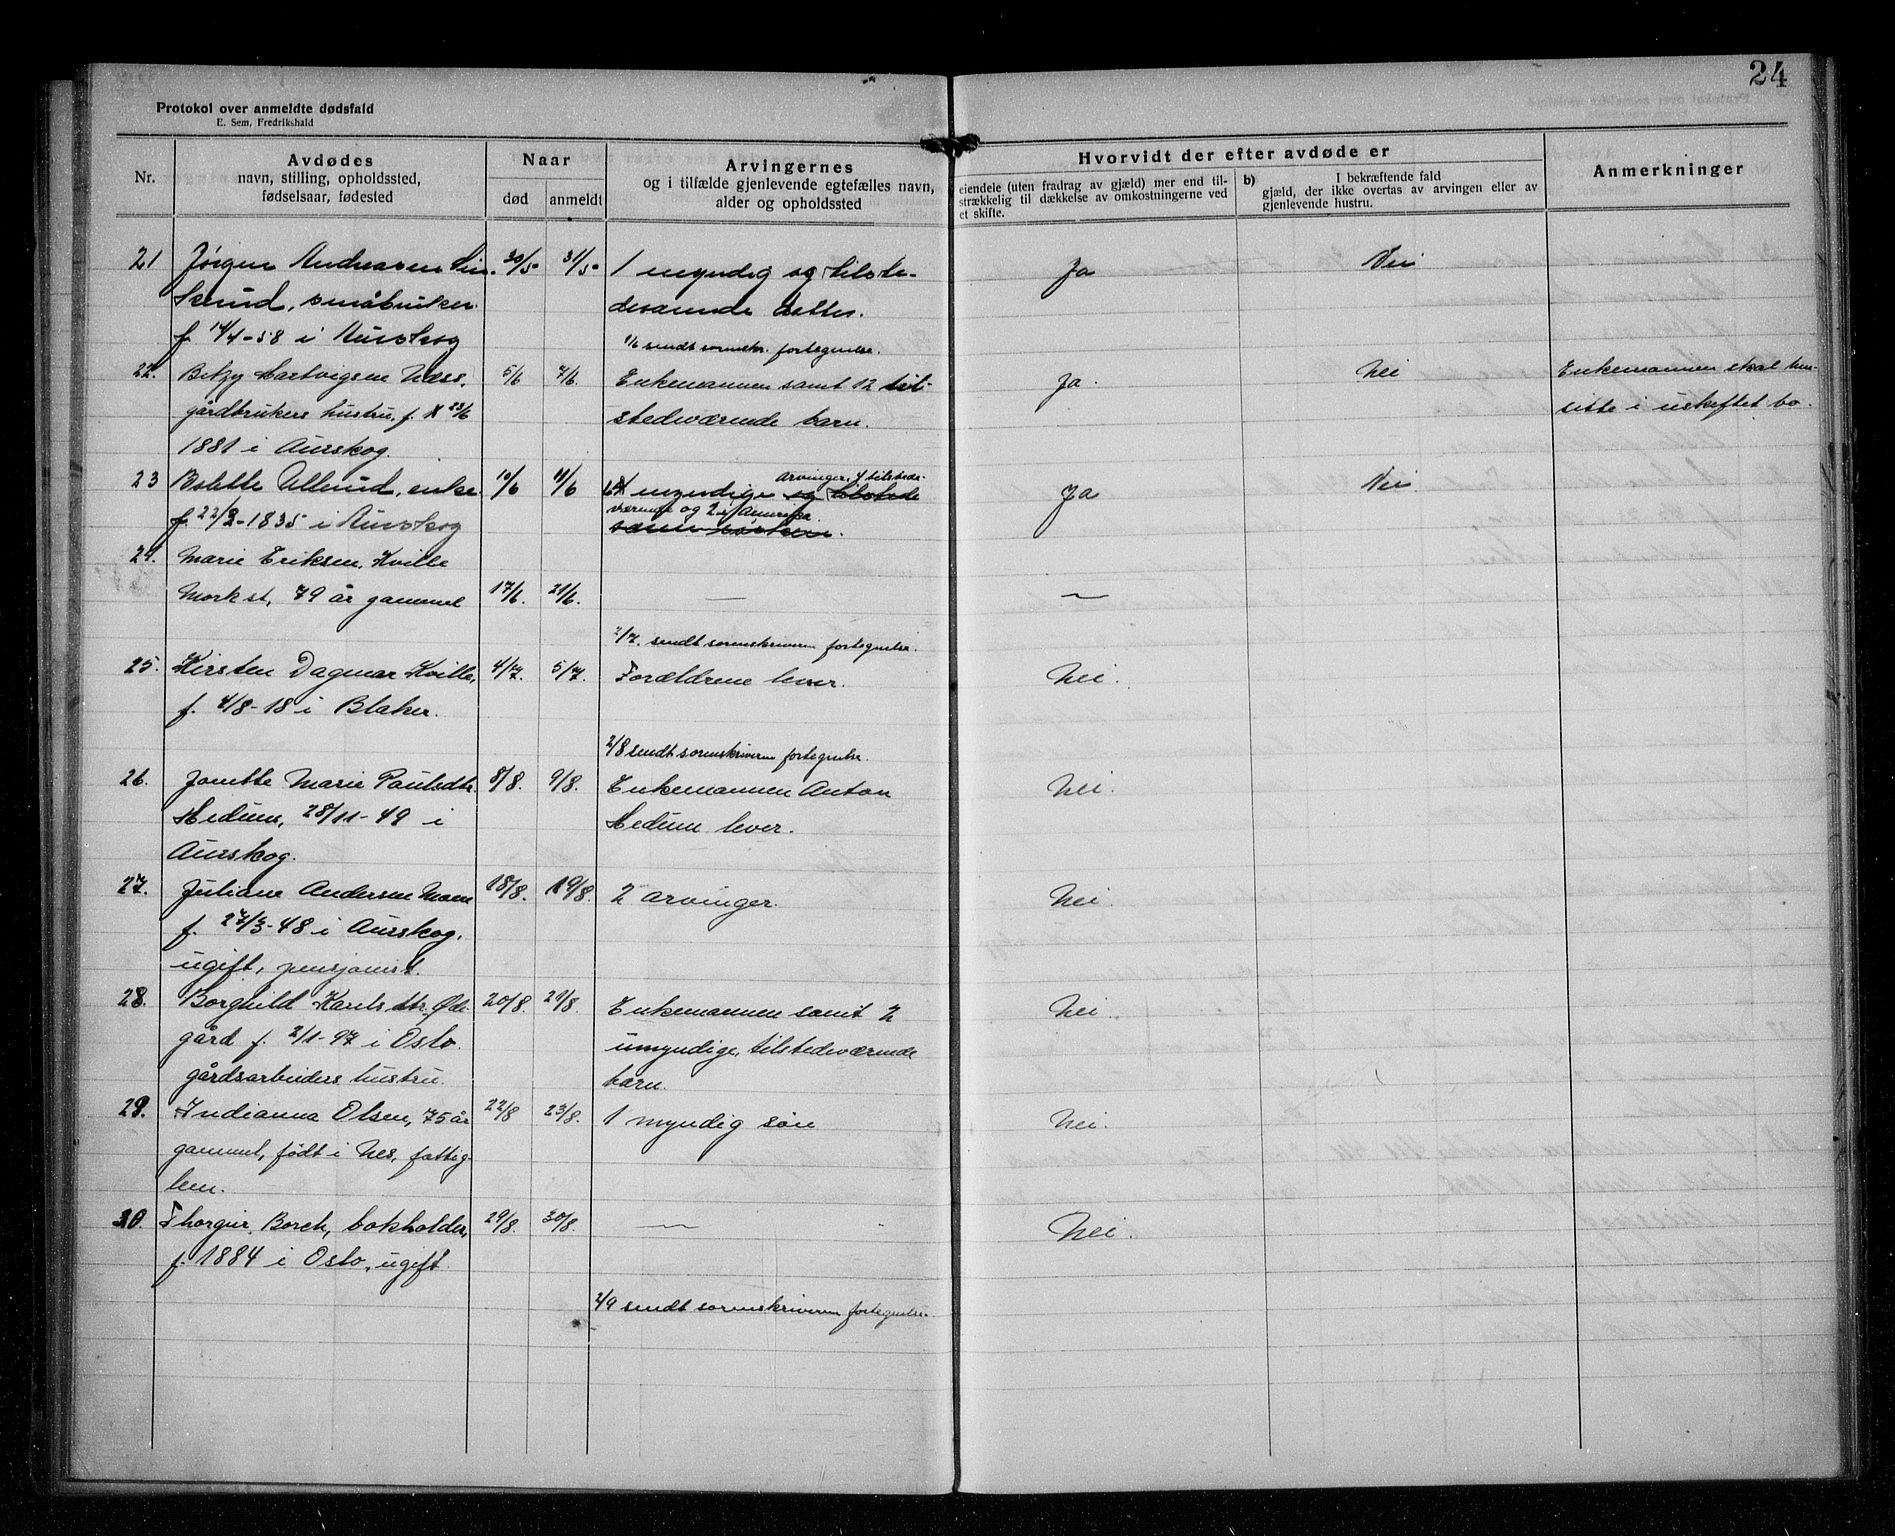 24
Protokol over anmeldte dødsfald
E. Sem, Fredrikshald
Nr.
Avdødes
navn, stilling, opholdssted,
fødselsaar, fødested
Naar
død anmeldt
Arvingernes
og i tilfælde gjenlevende egtefælles navn,
alder og opholdssted
Hvorvidt der efter avdøde er
eiendele (uten fradrag av gjæld) mer end til-
strækkelig til dækkelse av omkostningerne ved
et skifte.
b) I bekræftende fald
gjæld, der ikke overtas av arvingen eller av
gjenlevende hustru.
Anmerkninger
21 Jørgen Andreasen 30/5 31/5 1 myndig og tilste- Ja Nei
småbruker deværende datter.
f. 14/4-58 i Aurskog
1/6 sendt sorenskr. fortegnelse.
22. Betzy Hartvigsen Næss, 5/6 7/6. Enkemannen samt 12 til- Ja. Nei Enkemannen skal hen-
gårdbrukers hustru, f. 23/6 stedeværende barn. sitte i uskiftet bo.
1881 i Aurskog.
23 Bolette Ullerud, enke. 10/6 11/6 6 myndige og tilstede Ja Nei
arvinger, 4 tilstede-
værende og 2 i Amerika.
f. 22/2-1835 i Aurskog søsken.
24. Marie Eriksen, Kville
Mork st, 79 år gammel 17/6. 21/6. — —
2/7. sendt sorenskriveren fortegnelse.
25. Kirsten Dagmar Kville, 4/7. 5/7. Forældrene lever. Nei.
f. 4/8-18 i Blaker.
2/8 sendt sorenskriveren fortegnelse.
26. Janette Marie Paulsdtr. 8/8. 9/8. Enkemannen Anton Nei.
Hedum, 28/11-49 i Hedum lever.
Aurskog.
27. Juliane Andersen Moen 18/8. 19/8. 2 arvinger. Nei.
f. 27/3-48 i Aurskog,
ugift, pensjonist.
28. Borghild Karlsdtr. Øde- 20/8. 21/8. Enkemannen samt 2 Nei.
gård f. 2/1-97 i Oslo. umyndige, tilstedeværende
gårdsarbeiders hustru. barn.
29. Indianna Olsen, 75 år 22/8 23/8. 1 myndig søn Nei.
gammel, født i Nes, fattig-
lem.
30. Thorgeir Borch, bokholder, 29/8. 30/8. — Nei.
f. 1884 i Oslo, ugift.
2/9 sendt sorenskriveren fortegnelse.